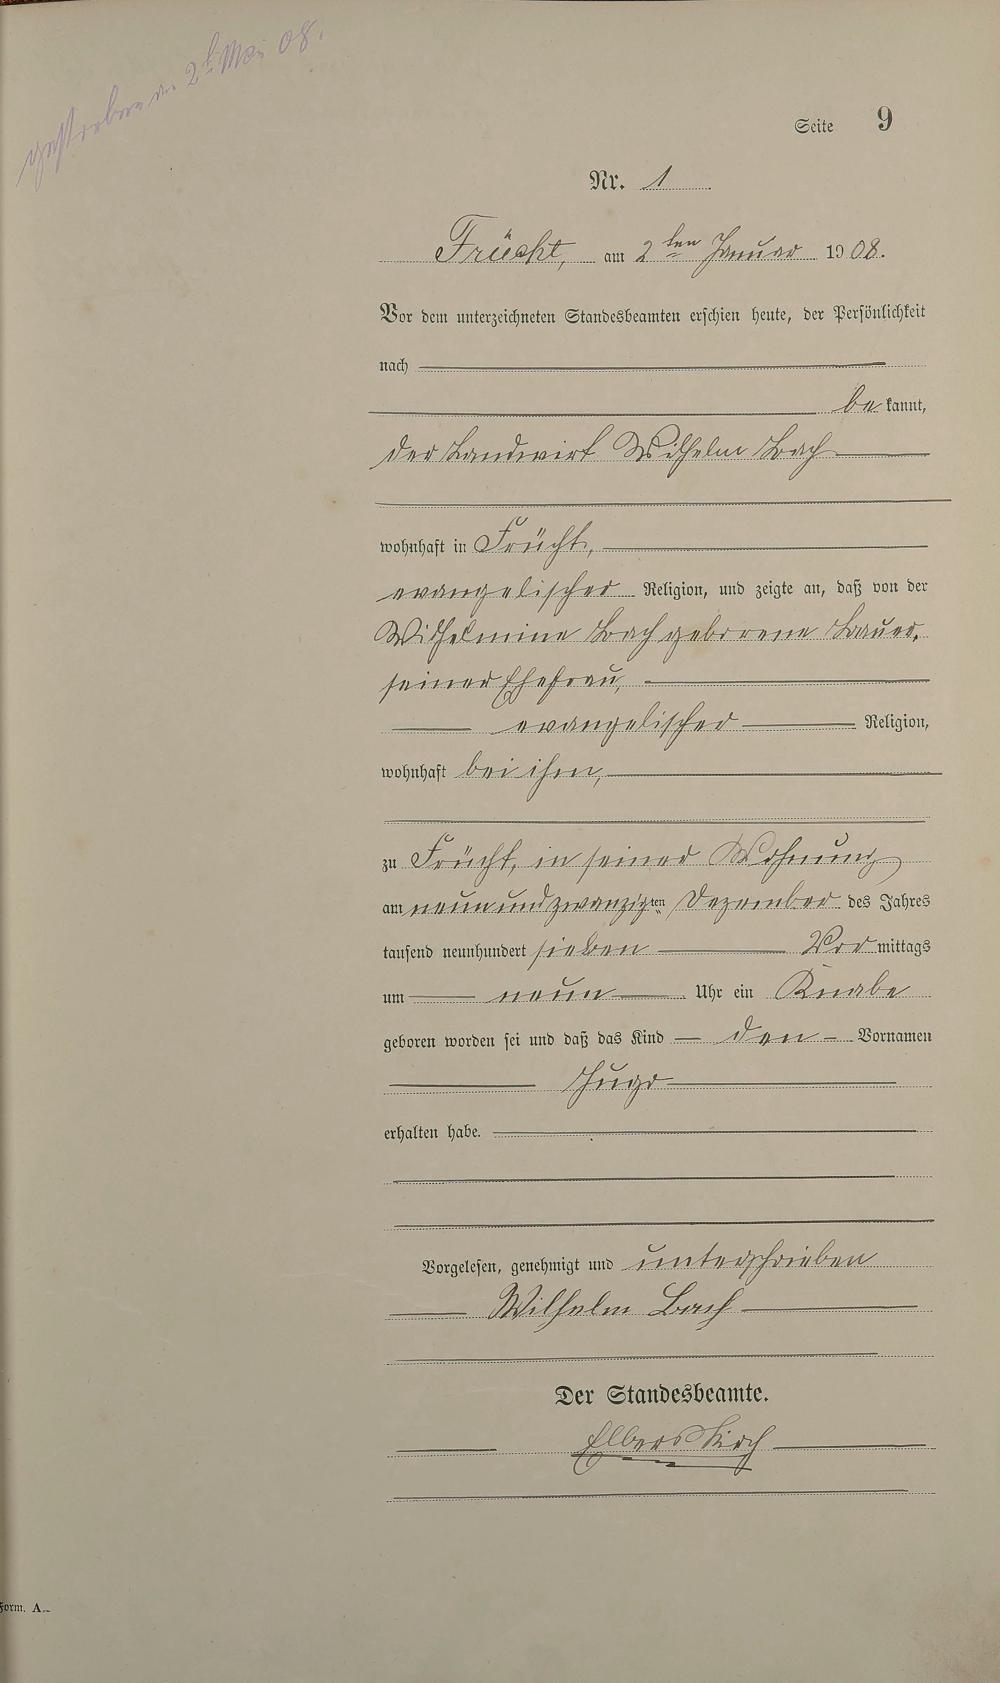 gestorben am 2t Mai 08.
Seite 9
Nr. 1
Frücht, am 2ten Januar 1908.
Vor dem unterzeichneten Standesbeamten erschien heute, der Persönlichkeit
nach
bekannt,
der Landwirt Wilhelm Bach
wohnhaft in Frücht,
evangelischer Religion, und zeigte an, daß von der
Wilhelmine Bach geborene Bauer,
seiner Ehefrau,
evangelischer Religion,
wohnhaft bei ihm,
zu Frücht, in seiner Wohnung
am neunundzwanzigten Dezember des Jahres
tausend neunhundert sieben Vormittags
um neun Uhr ein Knabe
geboren worden sei und daß das Kind den Vornamen
Hugo
erhalten habe.
Vorgelesen, genehmigt und unterschrieben
Wilhelm Bach
Der Standesbeamte.
Elberskirch
Form. A.